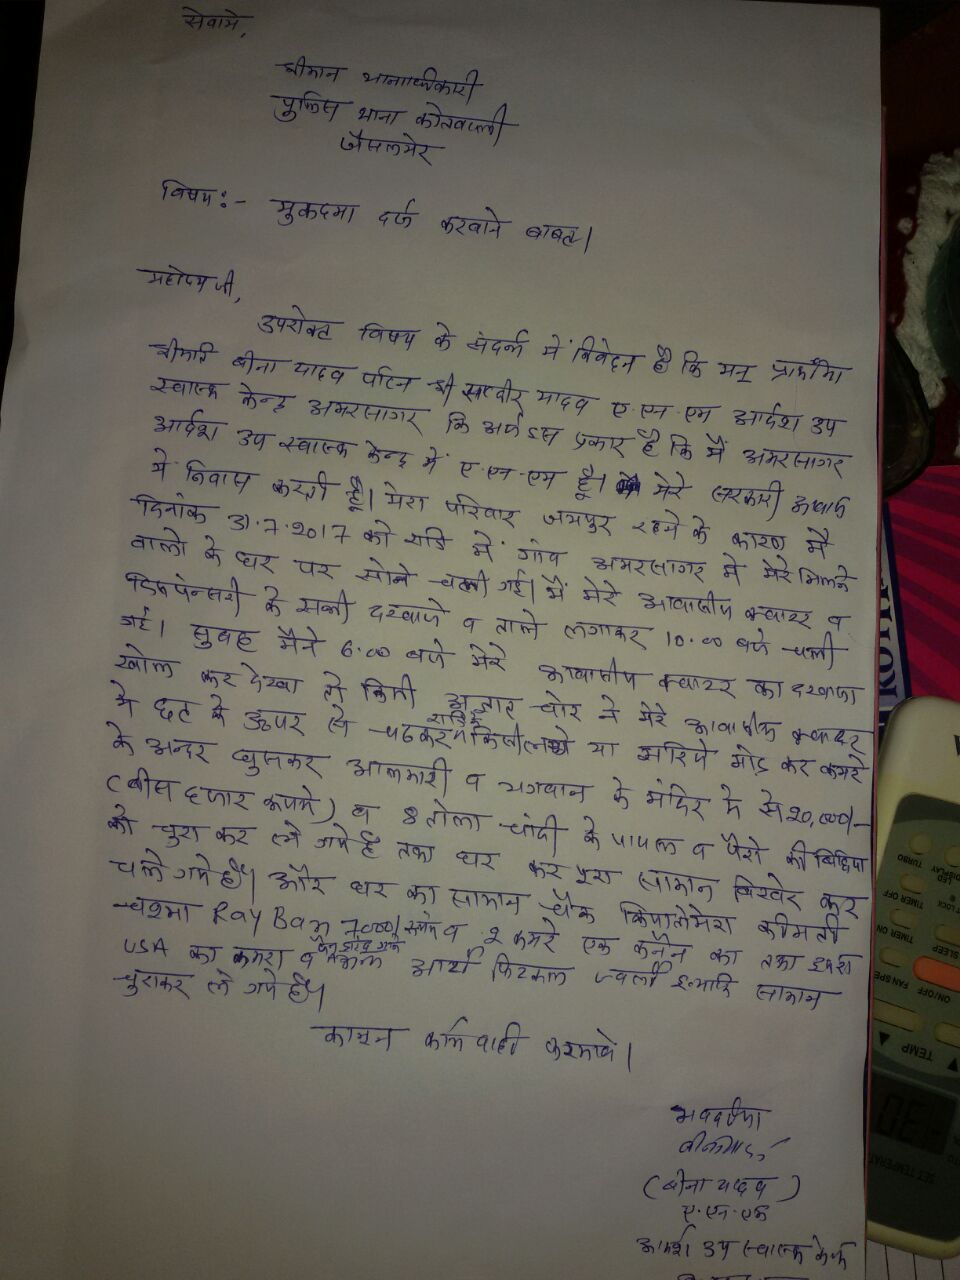 सेवामे,
श्रीमान थानाधिकारी
पुलिस थाना कोतवाली
जैसलमेर
विषय:- मुकदमा दर्ज करवाने बाबत।
महोदय जी,
उपरोक्त विषय के संदर्भ में निवेदन है कि मन् प्रार्थीया
श्रीमति बीना यादव पत्नि श्री सत्वीर यादव ए.एन.एम आर्दश उप
स्वास्थ केन्द्र अमरसागर कि अर्ज इस प्रकार है कि मैं अमरसागर
आर्दश उप स्वास्थ केन्द्र में ए.एन.एम हूँ। मेरे सरकारी आवास
मे निवास करती हूँ। मेरा परिवार जयपुर रहने के कारण मैं
दिनांक 31.7.2017 को रात्रि में गांव अमरसागर में मेरे मिलने
वालो के घर पर सोने चली गई। मैं मेरे आवासीय क्वाटर व
डिस्पेन्सरी के सभी दरवाजे व ताले लगाकर 10.00 बजे चली
गई। सुबह मैंने 6.00 बजे मेरे आवासीय क्वाटर का दरवाजा
खोल कर देखा तो किसी अज्ञात चोर ने मेरे आवासीय क्वाटर
मे छत के ऊपर से चढकर रात्रि में या सरिये मोड़ कर कमरे
के अन्दर घुसकर आलमारी व भगवान के मंदिर मे से 20,000/-
(बीस हजार रूपये) व 8 तोला चांदी के पायल व पैरो की बिछिया
को चुरा कर ले गये है तथा घर का पूरा सामान बिखेर कर
चले गये है। और घर का सामान चैक किया तो मेरा कीमती
चश्मा Ray Ban 7000/ रूपये व 2 कमरे एक कैनन का तथा दूसरा
USA का कमरा व आर्टि फिशियल ज्वलरी इत्यादि सामान
चुराकर ले गये है।
कानून कार्यवाही करावे।
भवदीया
(बीना यादव)
ए.एन.एम
आर्दश उप स्वास्थ केन्द्र
TURBO
LED DISPLAY
LOCK
TIMER OFF
TIMER ON
SLEEP
FAN SPEED
ON/OFF
TEMP
SET TEMPERAT